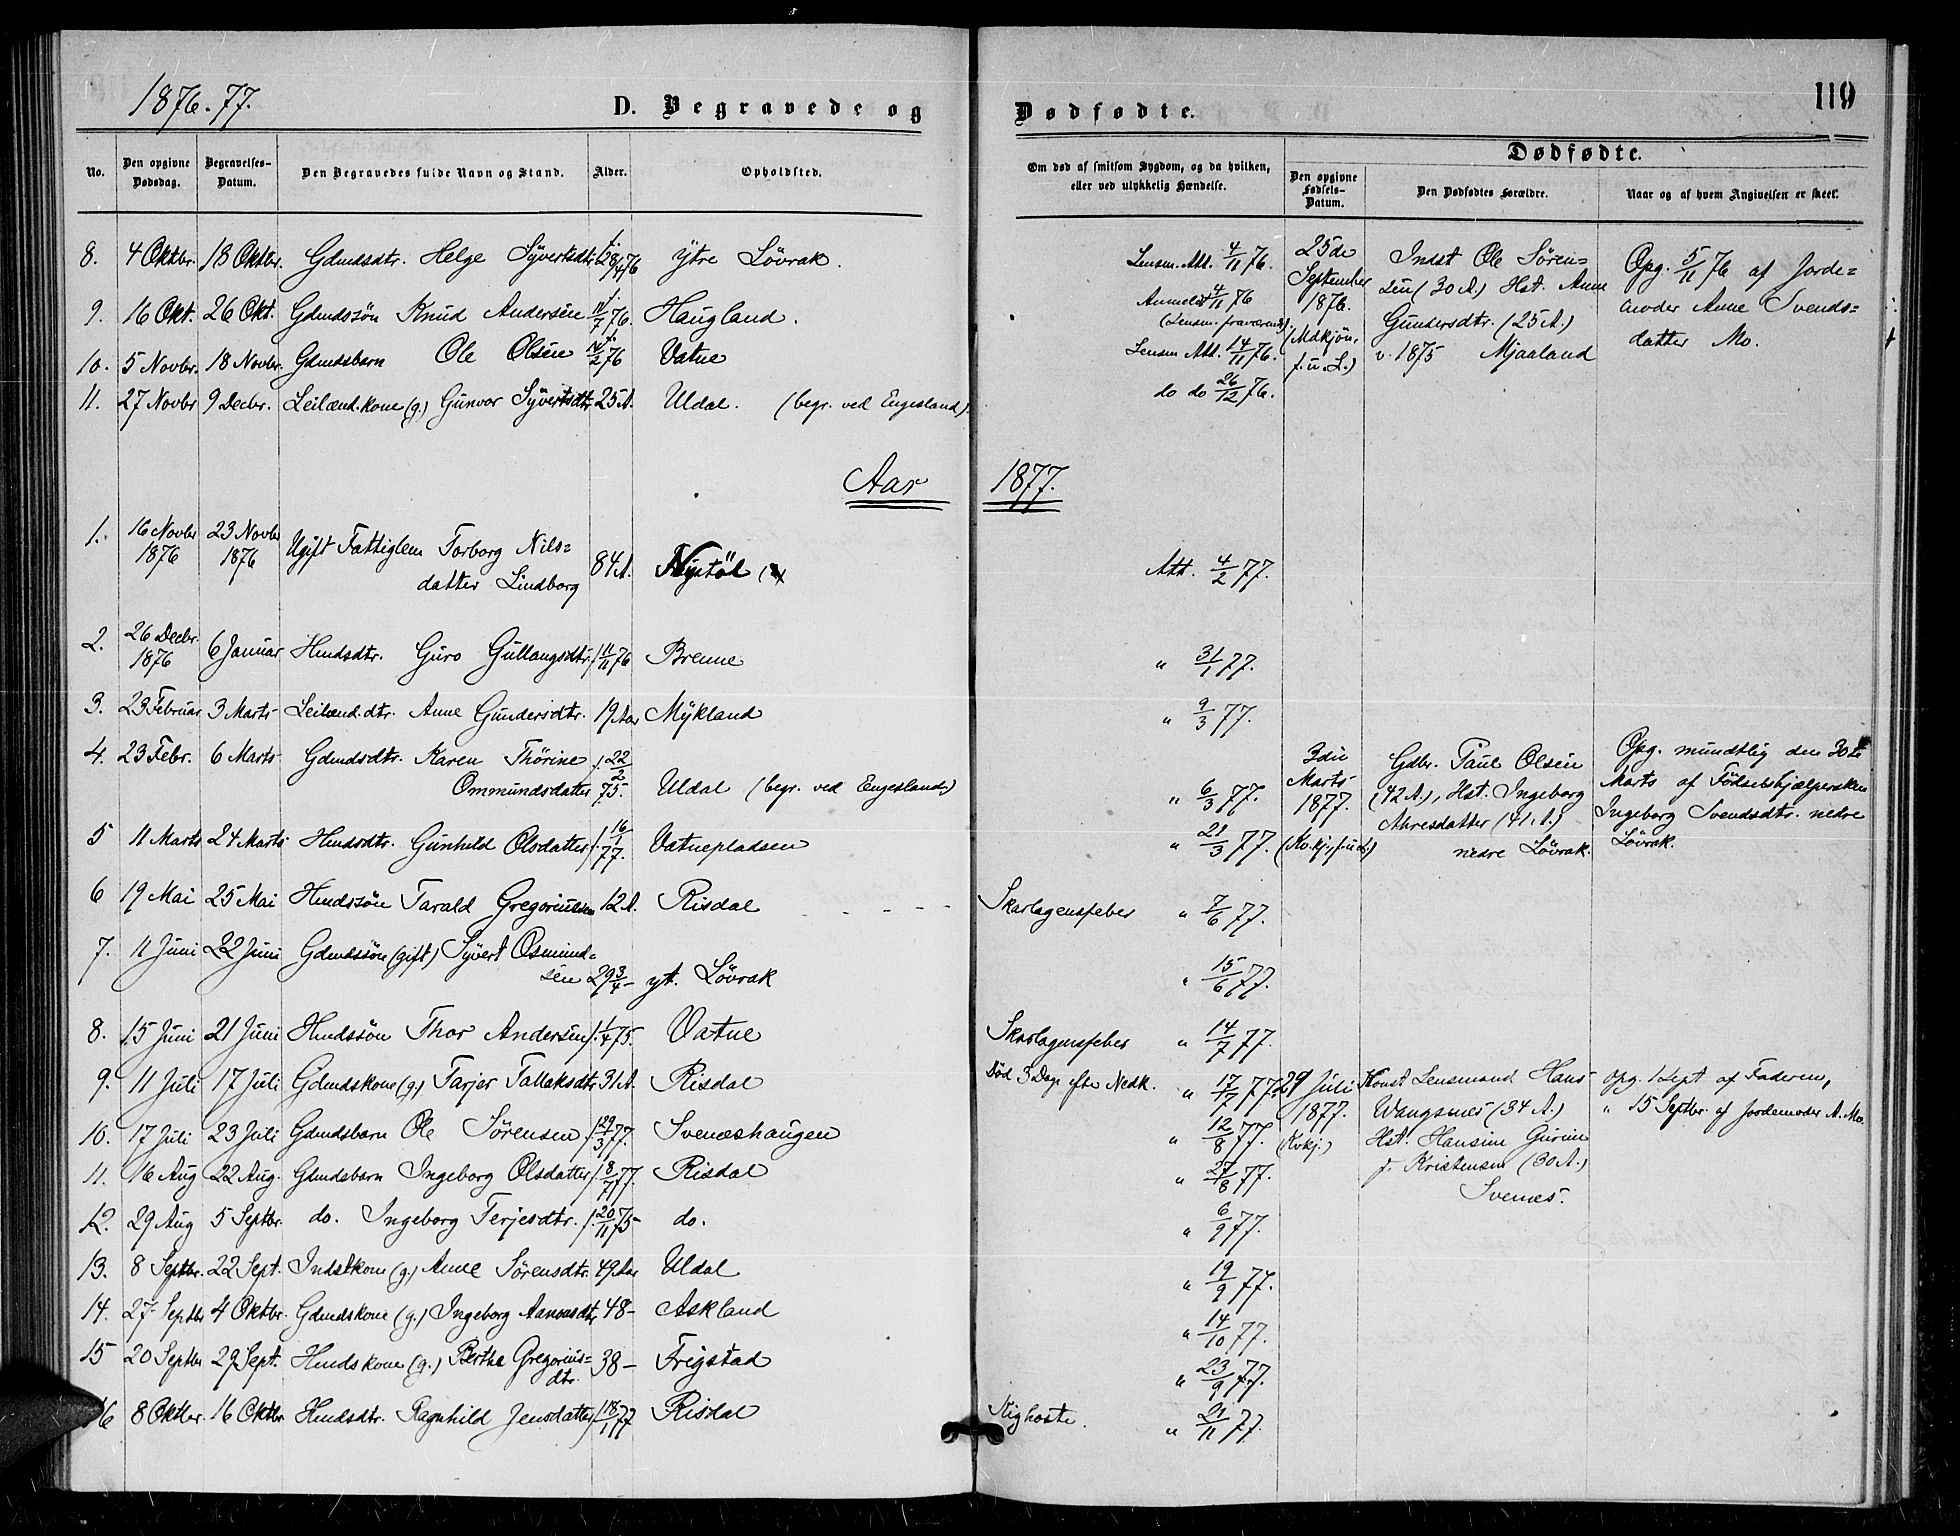 1876.77.
D. Begravede og
Dødfødte.
119
No.
Den opgivne Dødsdag.
Begravelses-Datum.
Den Begravedes fulde Navn og Stand.
Alder.
Opholdsted.
Om død af smitsom Sygdom, og da hvilken, eller ved ulykkelig Hændelse.
Dødfødte.
Den opgivne Fødsels-Datum.
Den Dødfødtes Forældre.
Naar og af hvem Angivelsen er skeet.
8. 4 Oktbr. 18 Oktbr. Gdmdsdtr. Helge Syvertsdtr. Ytre Lövrak. Lensm. Att. 4/11 76.
9. 16 Okt. 26 Okt. Gdmdssön Knud Andersen f. 11/7 76. Haugland. Anmeldt 4/11 76
(Lensm. fraværende)
10. 5 Novbr. 18 Novbr. Gdmdsbarn Ole Olsen 76 Vatne Lensm Att. 14/11 76.
11. 27 Novbr 9 Decbr. Leilænd.kone (g.) Gunvor Syvertsdtr 25 A. Uldal. (begr. ved Engesland). do do 26/12 76.
25de September 1876. (Mdkjön, f. u. L.)
Indst Ole Sören=
sen (30 A.) Hst. Anne
Gundersdtr. (25 A.)
v. 1875 Mjaaland
Opg. 5/11 76 af Jorde=
moder Anne Svends=
datter Mo.
Aar 1877.
1. 16 Novbr 1876 23 Novbr 1876 Ugift Fattiglem Torborg Nils=
datter Lindborg 84 A. Att. 4/2 77.
2. 26 Decbr. 1876 6 Januar Hmdsdtr. Guro Gullaugsdtr. f 11/11 76 Brenne " 31/1 77.
3. 23 Februar 3 Marts Leilænd.dtr. Anne Gundersdtr. 19 Aar Mykland " 9/3 77.
4. 23 Febr. 6 Marts Gdmdsdtr. Karen Thörine
Ommundsdatter f. 22/2 75. Uldal (begr. ved Engesland) " 6/3 77.
3die Marts 1877. (Kv.kj., f. u. L)
Gdbr. Paul Olsen
(42 A.), Hst. Ingeborg
Ahresdatter (41 A.)
nedre Lövrak.
Opg. mundtlig den 30te
Marts af Födselshjælpersken
Ingeborg Svendsdtr. nedre
Lövrak.
5 11 Marts 24 Marts Hmdsdtr. Gunhild Olsdatter f. 16/1 77. Vatnepladsen " 21/3 77.
6 19 Mai 25 Mai Hmdssön Tarald Gregoriussen 12 A. Risdal - - - - Skarlagensfeber " 7/6 77.
7. 11 Juni 22 Juni Gdmdssön (gift) Syvert Osmund=
sen 29 3/4 - yt. Lövrak " 15/6 77.
8. 15 Juni 21 Juni Hmdssön Thor Andersen f. 1/4 75. Vatne Skarlagensfeber " 14/7 77.
9. 11 Juli 17 Juli Gdmdskone (g.) Tarjer Tallaksdtr. 31 A. Risdal Död 3 Dage efter Nedk. " 17/7 77.
29 Juli 1877. (Kvkj.)
Konst Lensmand Hans
Wangsnes (34 A.)
Hst. Hansine Gurine
f. Kristensen (30 A.)
Svenes.
Opg. 1 Sept af Faderen,
" 15 Septbr. af Jordemoder A. Mo.
10. 17 Juli 23 Juli Gdmdsbarn Ole Sörensen f. 29/3 77. Svenæshaugen " 12/8 77.
11. 16 Aug 22 Aug. Gdmdsbarn Ingeborg Olsdatter f. 8/7 77. Risdal " 27/8 77.
12. 29 Aug 5 Septbr. do. Ingeborg Terjesdtr. f. 20/11 75 do. " 6/9 77.
13. 8 Septbr. 22 Sept. Indstkone (g.) Anne Sörensdtr. 49 Aar Uldal " 19/9 77.
14. 27 Septbr 4 Oktbr. Gdmdskone (g.) Ingeborg Aanonsdtr 48 - Askland " 14/10 77.
15 20 Septbr 29 Sept. Hmdskone (g.) Berthe Gregorius=
dtr. 38 - Frigstad " 23/9 77.
16 8 Oktbr. 16 Oktbr Hmdsdtr. Ragnhild Jensdatter f 18/1 77 Risdal Kighoste. " 21/11 77.